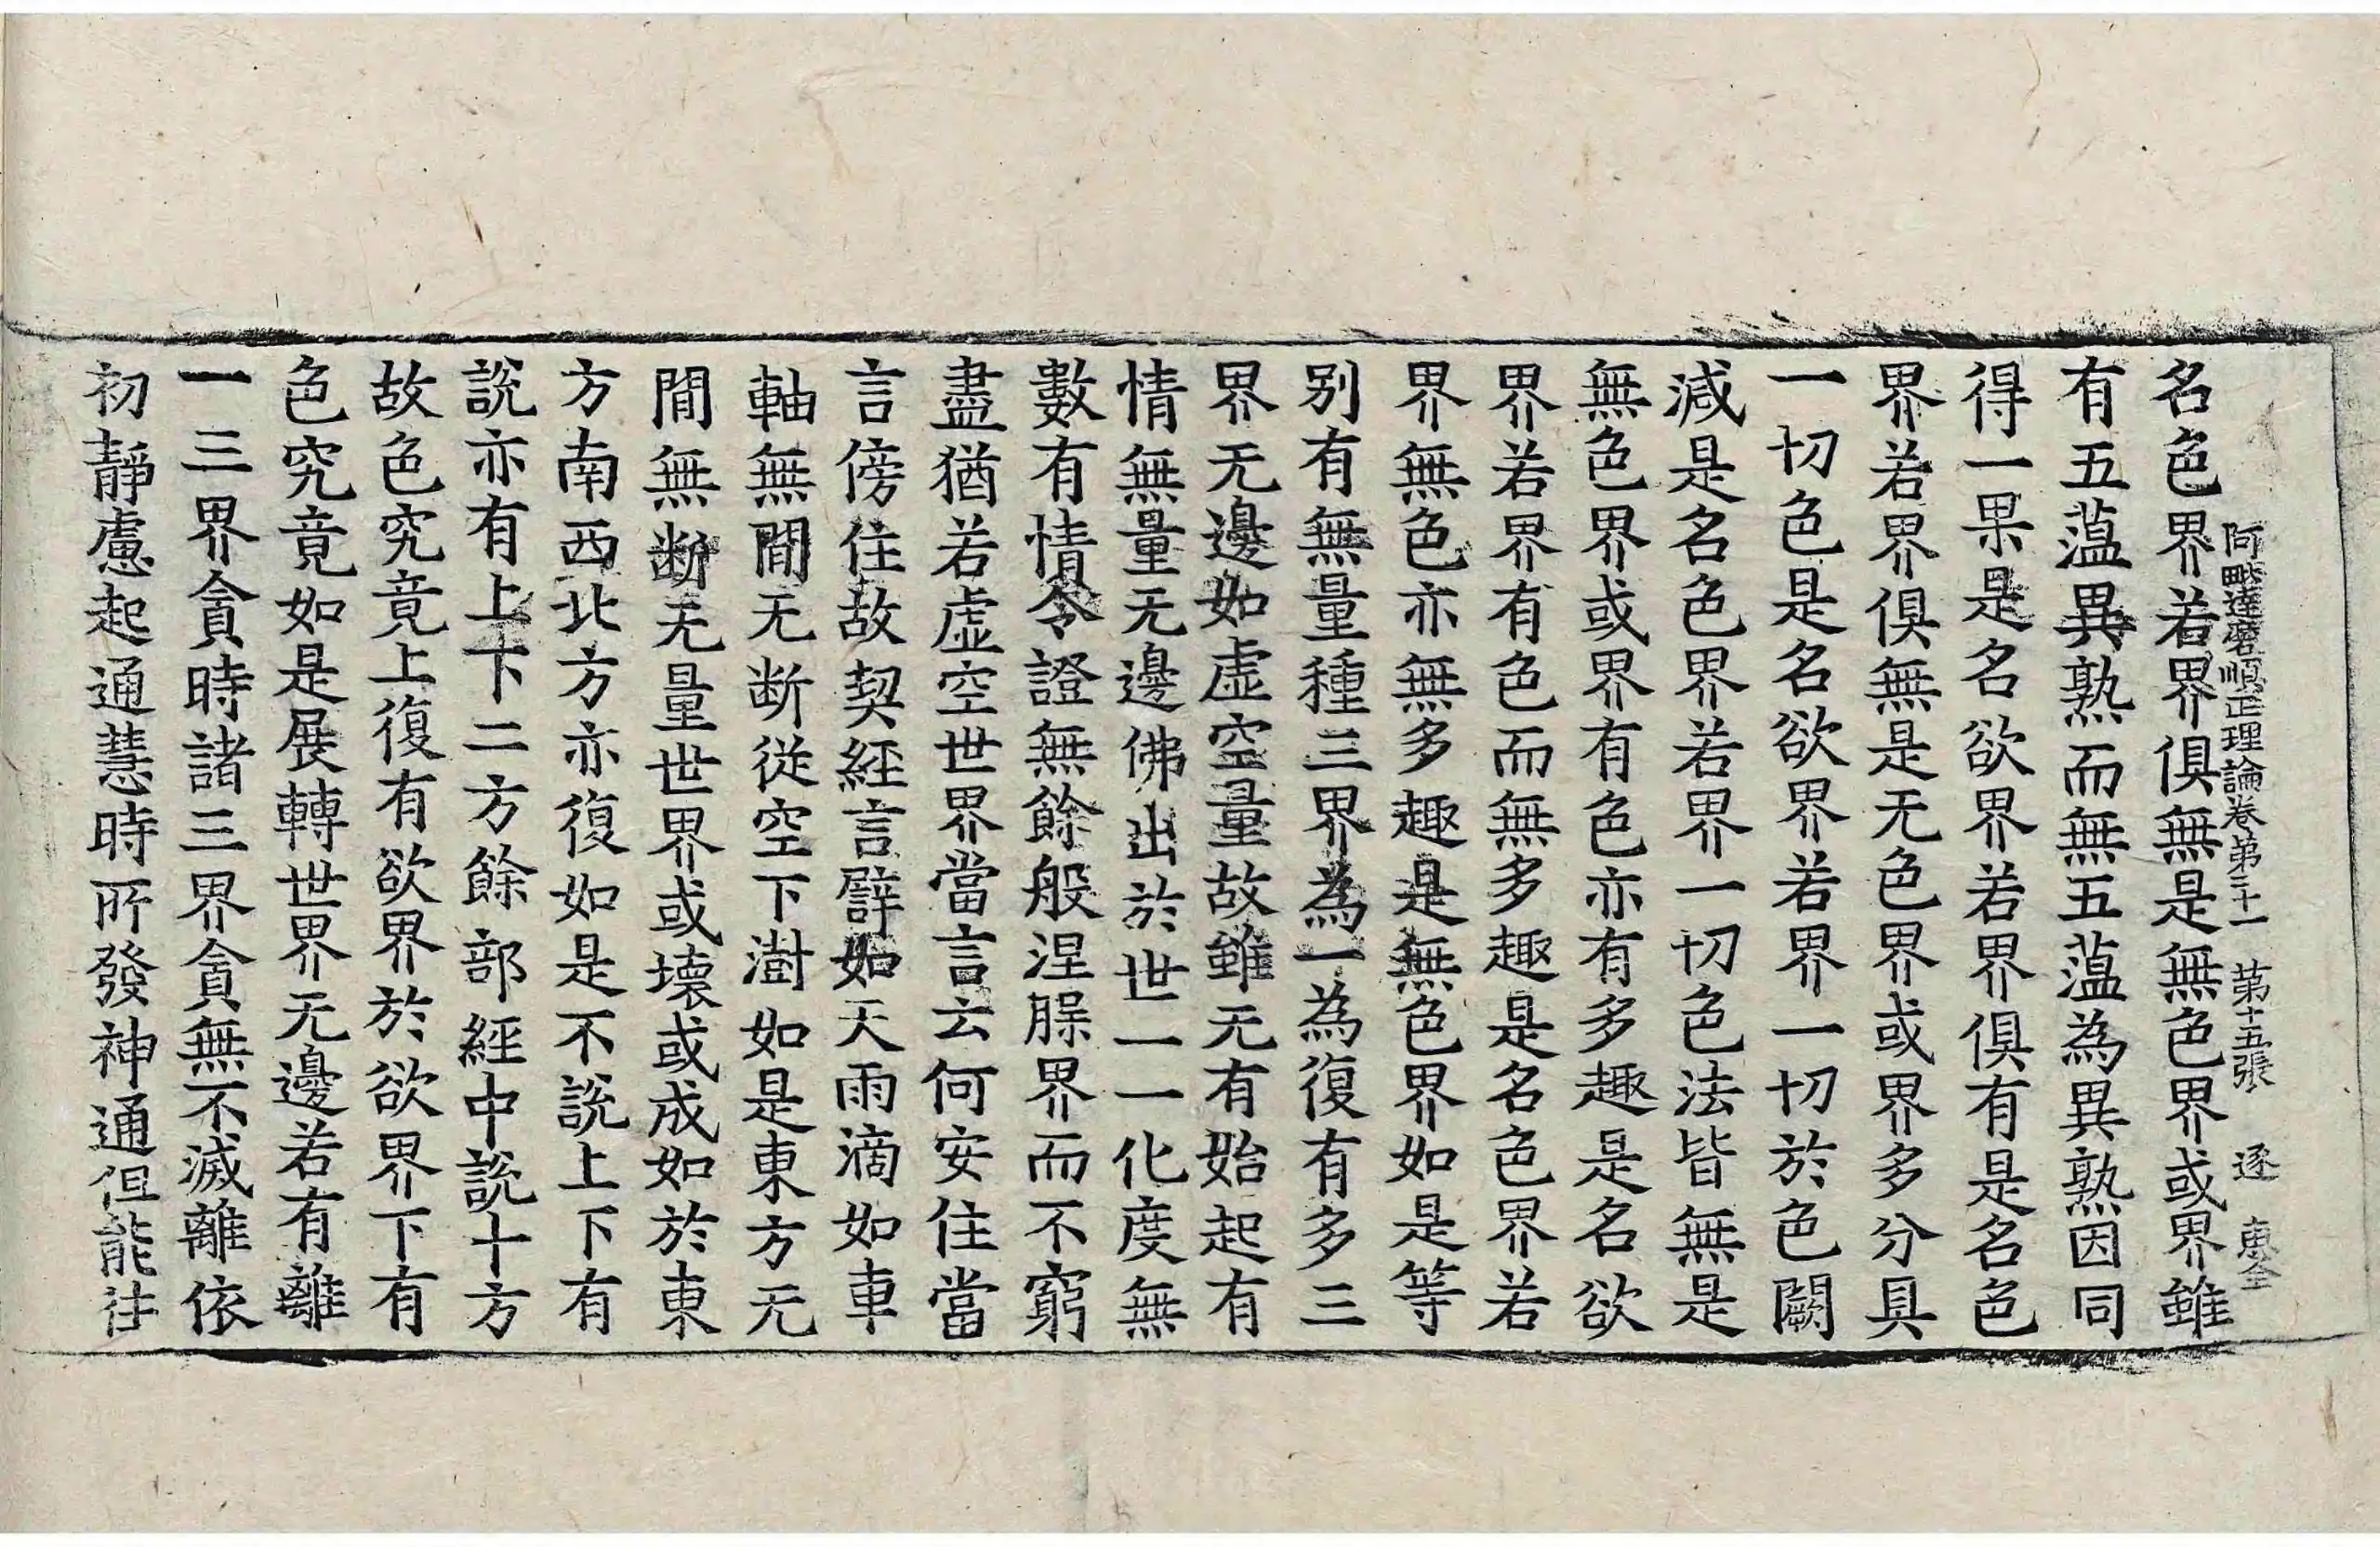 阿毗達磨順正理論卷第二十一 第十五張 逐 惠全
名色界若界俱無是無色界或界雖
有五薀異熟而無五薀為異熟因同
得一果是名欲界若界俱有是名色
界若界俱無是无色界或界多分具
一切色是名欲界若界一切於色闕
減是名色界若界一切色法皆無是
無色界或界有色亦有多趣是名欲
界若界有色而無多趣是名色界若
界無色亦無多趣是無色界如是等
别有無量種三界為一為復有多三
界无邊如虛空量故雖无有始起有
情無量无邊佛出於世一一化度無
數有情令證無餘般涅臊界而不窮
盡猶若虛空世界當言云何安住當
言傍住故契經言譬如天雨滴如車
軸無間无断從空下澍如是東方无
間無断无量世界或壞或成如於東
方南西北方亦復如是不說上下有
說亦有上下二方餘部經中說十方
故色究竟上復有欲界於欲界下有
色究竟如是展轉世界无邊若有離
一三界貪時諸三界貪無不滅離依
初靜慮起通慧時所發神通但能往